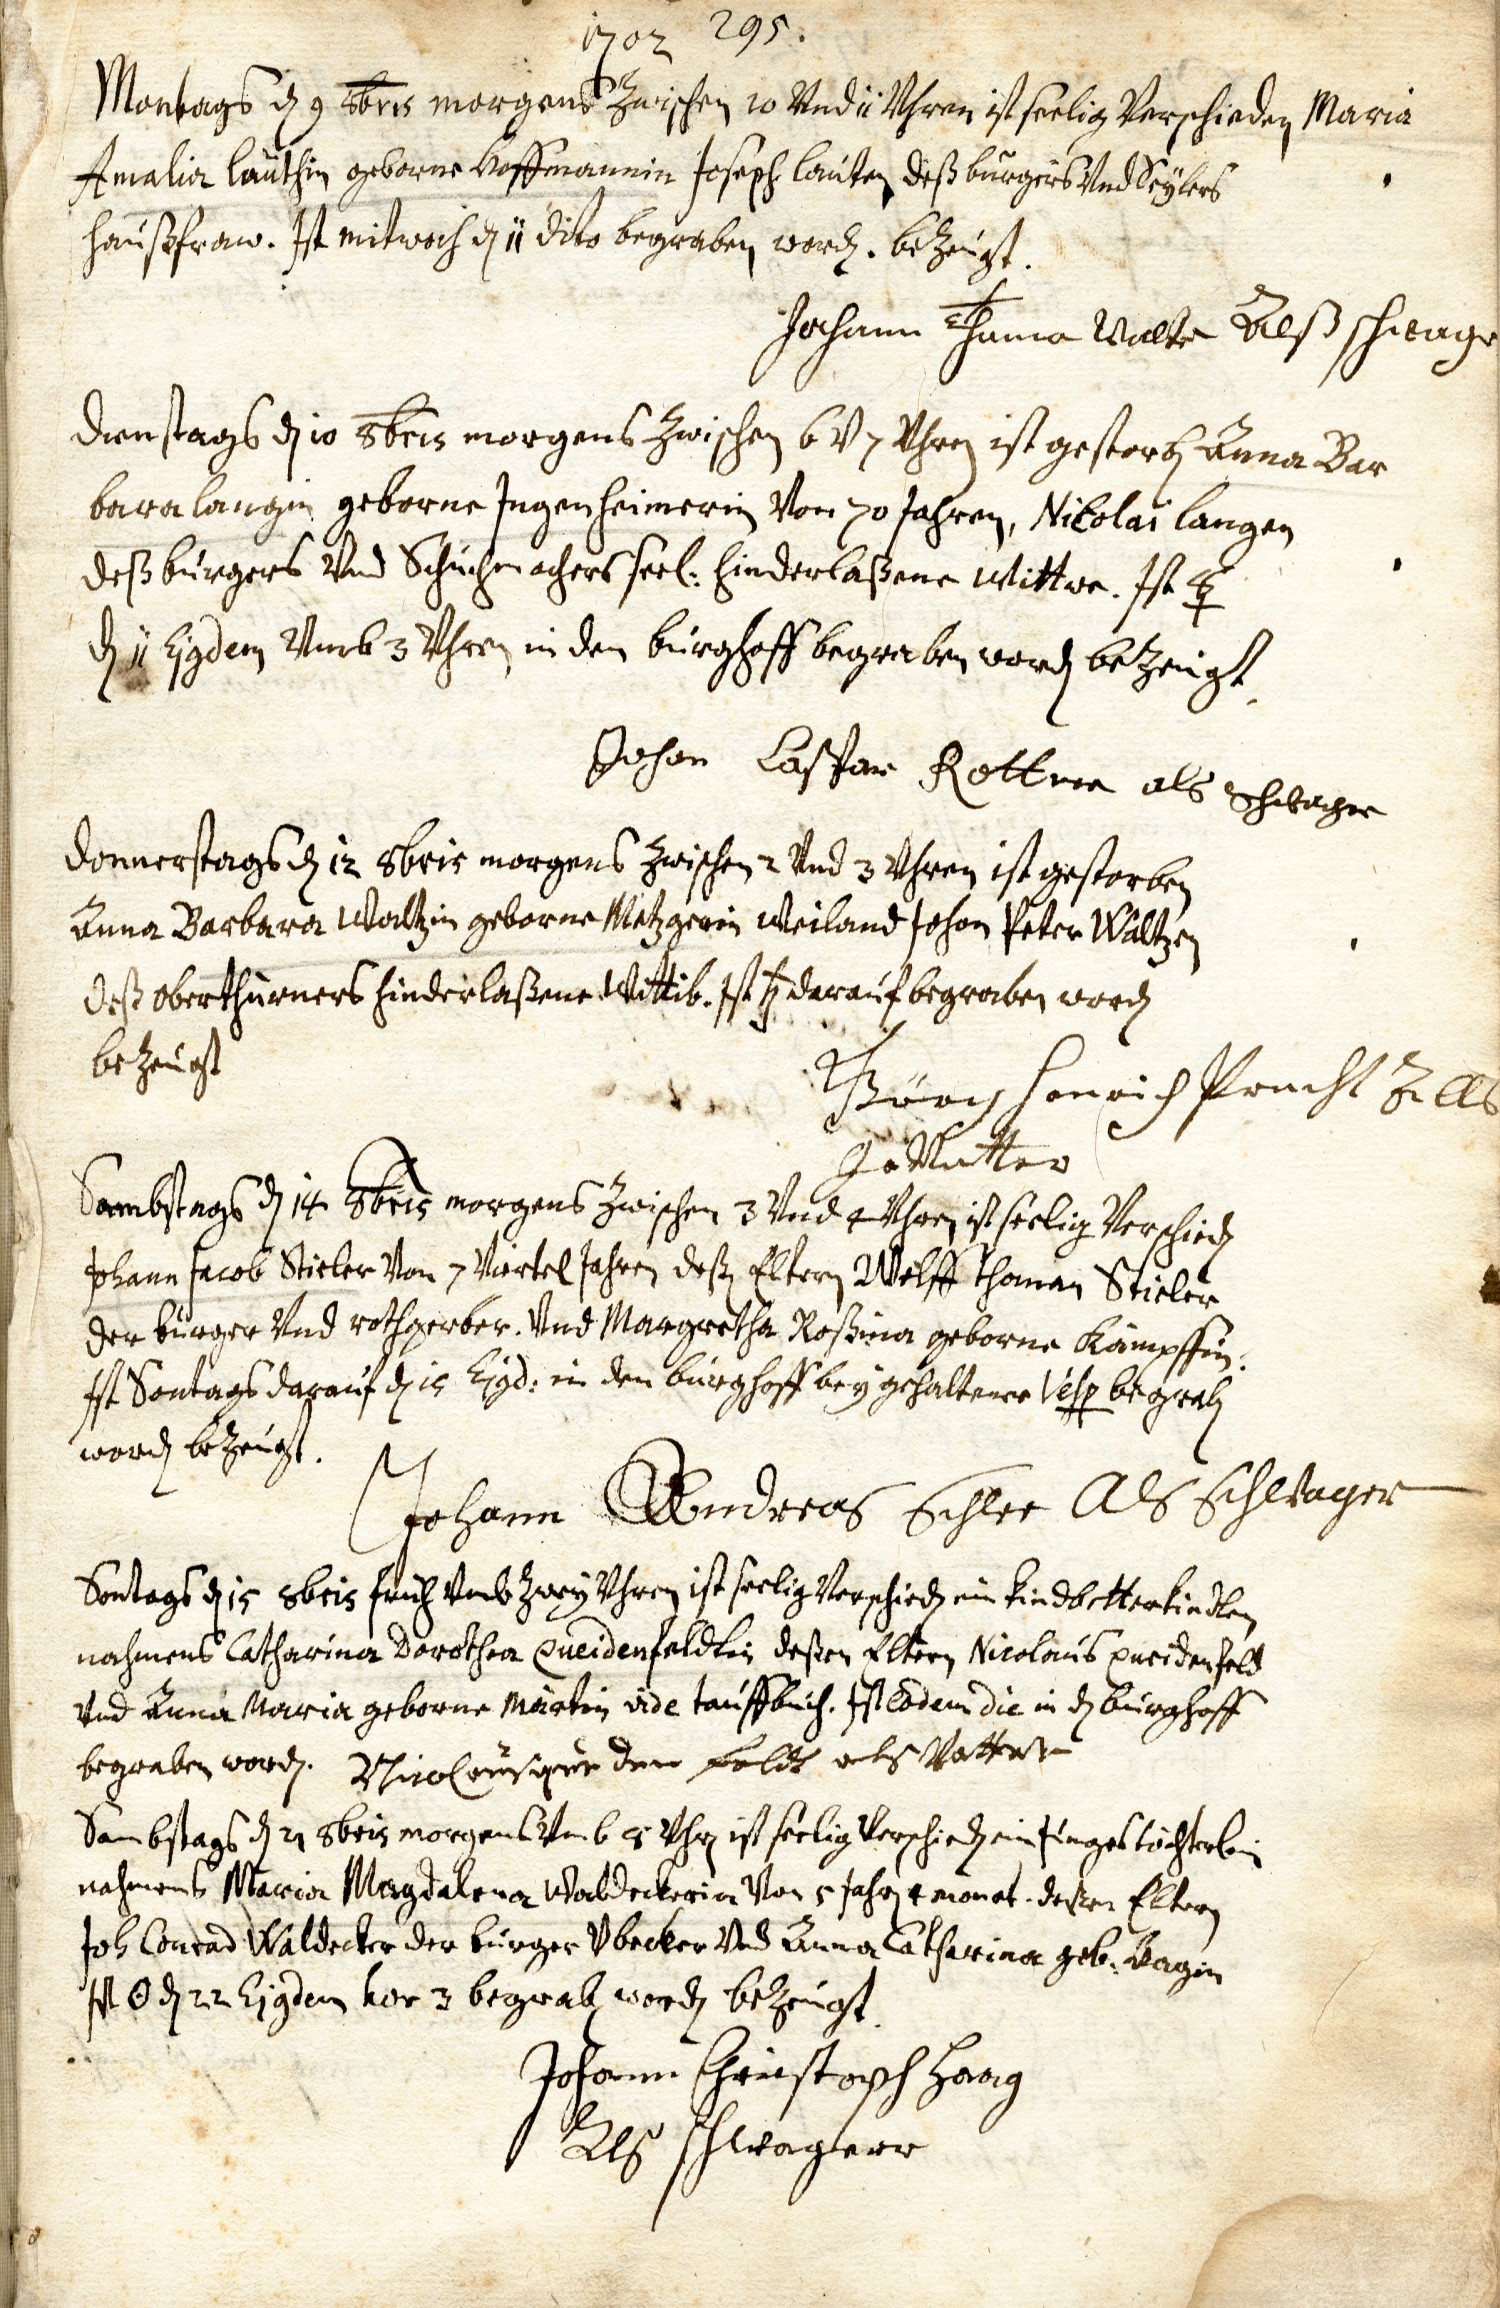 1702 295.
Montags d 9 8bris morgens zwischen 10 Vnd 11 Vhren ist seelig Verschieden Maria
Amalia lauthin geborne Hoffmannin Joseph lauten deß burgers Vnd Seylers
haußfraw. Ist mitwoch d 11 dito begraben word. bezeugt.
Johann Thoma Walter Alß schwager
Dienstags d 10 8bris morgens zwischen 6 V 7 Vhren ist gestorb Anna Bar
bara langin geborne Ingenheimerin Von 70 Jahren, Nicolai langen
deß burgers Vnd Schuchmachers seel: hinderlaßene Wittwe. Ist ☿
d 11 Ejgdem Vmb 3 Vhren in den burghoff begraben word bezeugt.
Johan Casspar Rottner als schwager
Donnerstags d 12 8bris morgens zwischen 2 Vnd 3 Vhren ist gestorben
Anna Barbara Waltzin geborne Metzgerin Weiland Johan Peter Waltzen
deß oberthurners hinderlaßene Wittib. Ist darauf begraben word
bezeugt
Görg Henrich Pracht Alls
geVatter
Sambstags d 14 8bris morgens zwischen 3 Vnd 4 Vhren ist seelig Verschied
Johann Jacob Stieler Von 7 Viertel Jahren deßen Eltern Wolff Thoman Stieler
der burger Vnd rothgerber. Vnd Margretha Roßina geborne Kämpffin.
Ist Sontags darauf d 15 Ejgd: in den burghoff bey gehaltener Vesp begrab
word bezeugt.
Johann Andreas Schlee Als Schwager
Sontags d 15 8bris früh Vmb zwey Vhren ist seelig Verschied ein kindbetterkindlen
nahmens Catharina Dorothea Queidenfeldtin deßen Eltern Nicolaus Queidenfeld
Vnd Anna Maria geborne Märtin vide tauffbuch. Ist Eodem die in d burghoff
begraben word. Nicolaus que den feldt als Vatter
Sambstags d 21 8bris morgens Vmb 5 Vhr ist seelig Verschied ein junges töchterlein
nahmens Maria Magdalena Waldeckerin Von 5 Jahr 4 monat. deßen Eltern
Joh Conrad Waldecker der burger V becker Vnd Anna Catharina geb:
Ist ☉ d 22 Ejgdem hor 3 begrab word bezeugt.
Johann Christoph Haag
Als schwagerr